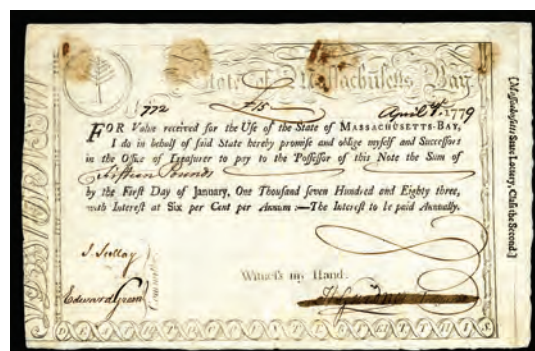 State of Massachusetts Bay
772 £15 April 1779
FOR Value received for the Uſe of the State of MASSACHUSETTS-BAY,
I do in behalf of ſaid State hereby promiſe and oblige myſelf and Succeſſors
in the Office of Treaſurer to pay to the Poſſeſſor of this Note the Sum of
Fifteen Pounds
by the Firſt Day of January, One Thouſand ſeven Hundred and Eighty three,
with Intereſt at Six per Cent per Annum :—The Intereſt to be paid Annually.
Witneſs my Hand.
[Maſſachuſetts State Lottery, Claſs the Second.]